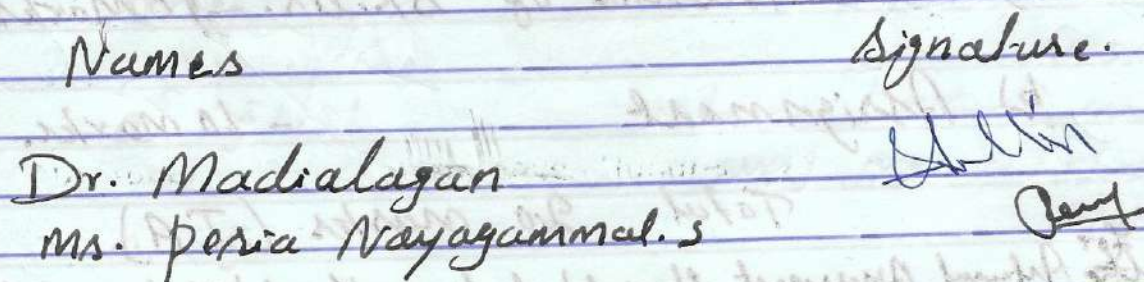 Names Signature.
Dr. Madialagan
Ms. Peria Nayagammal. s